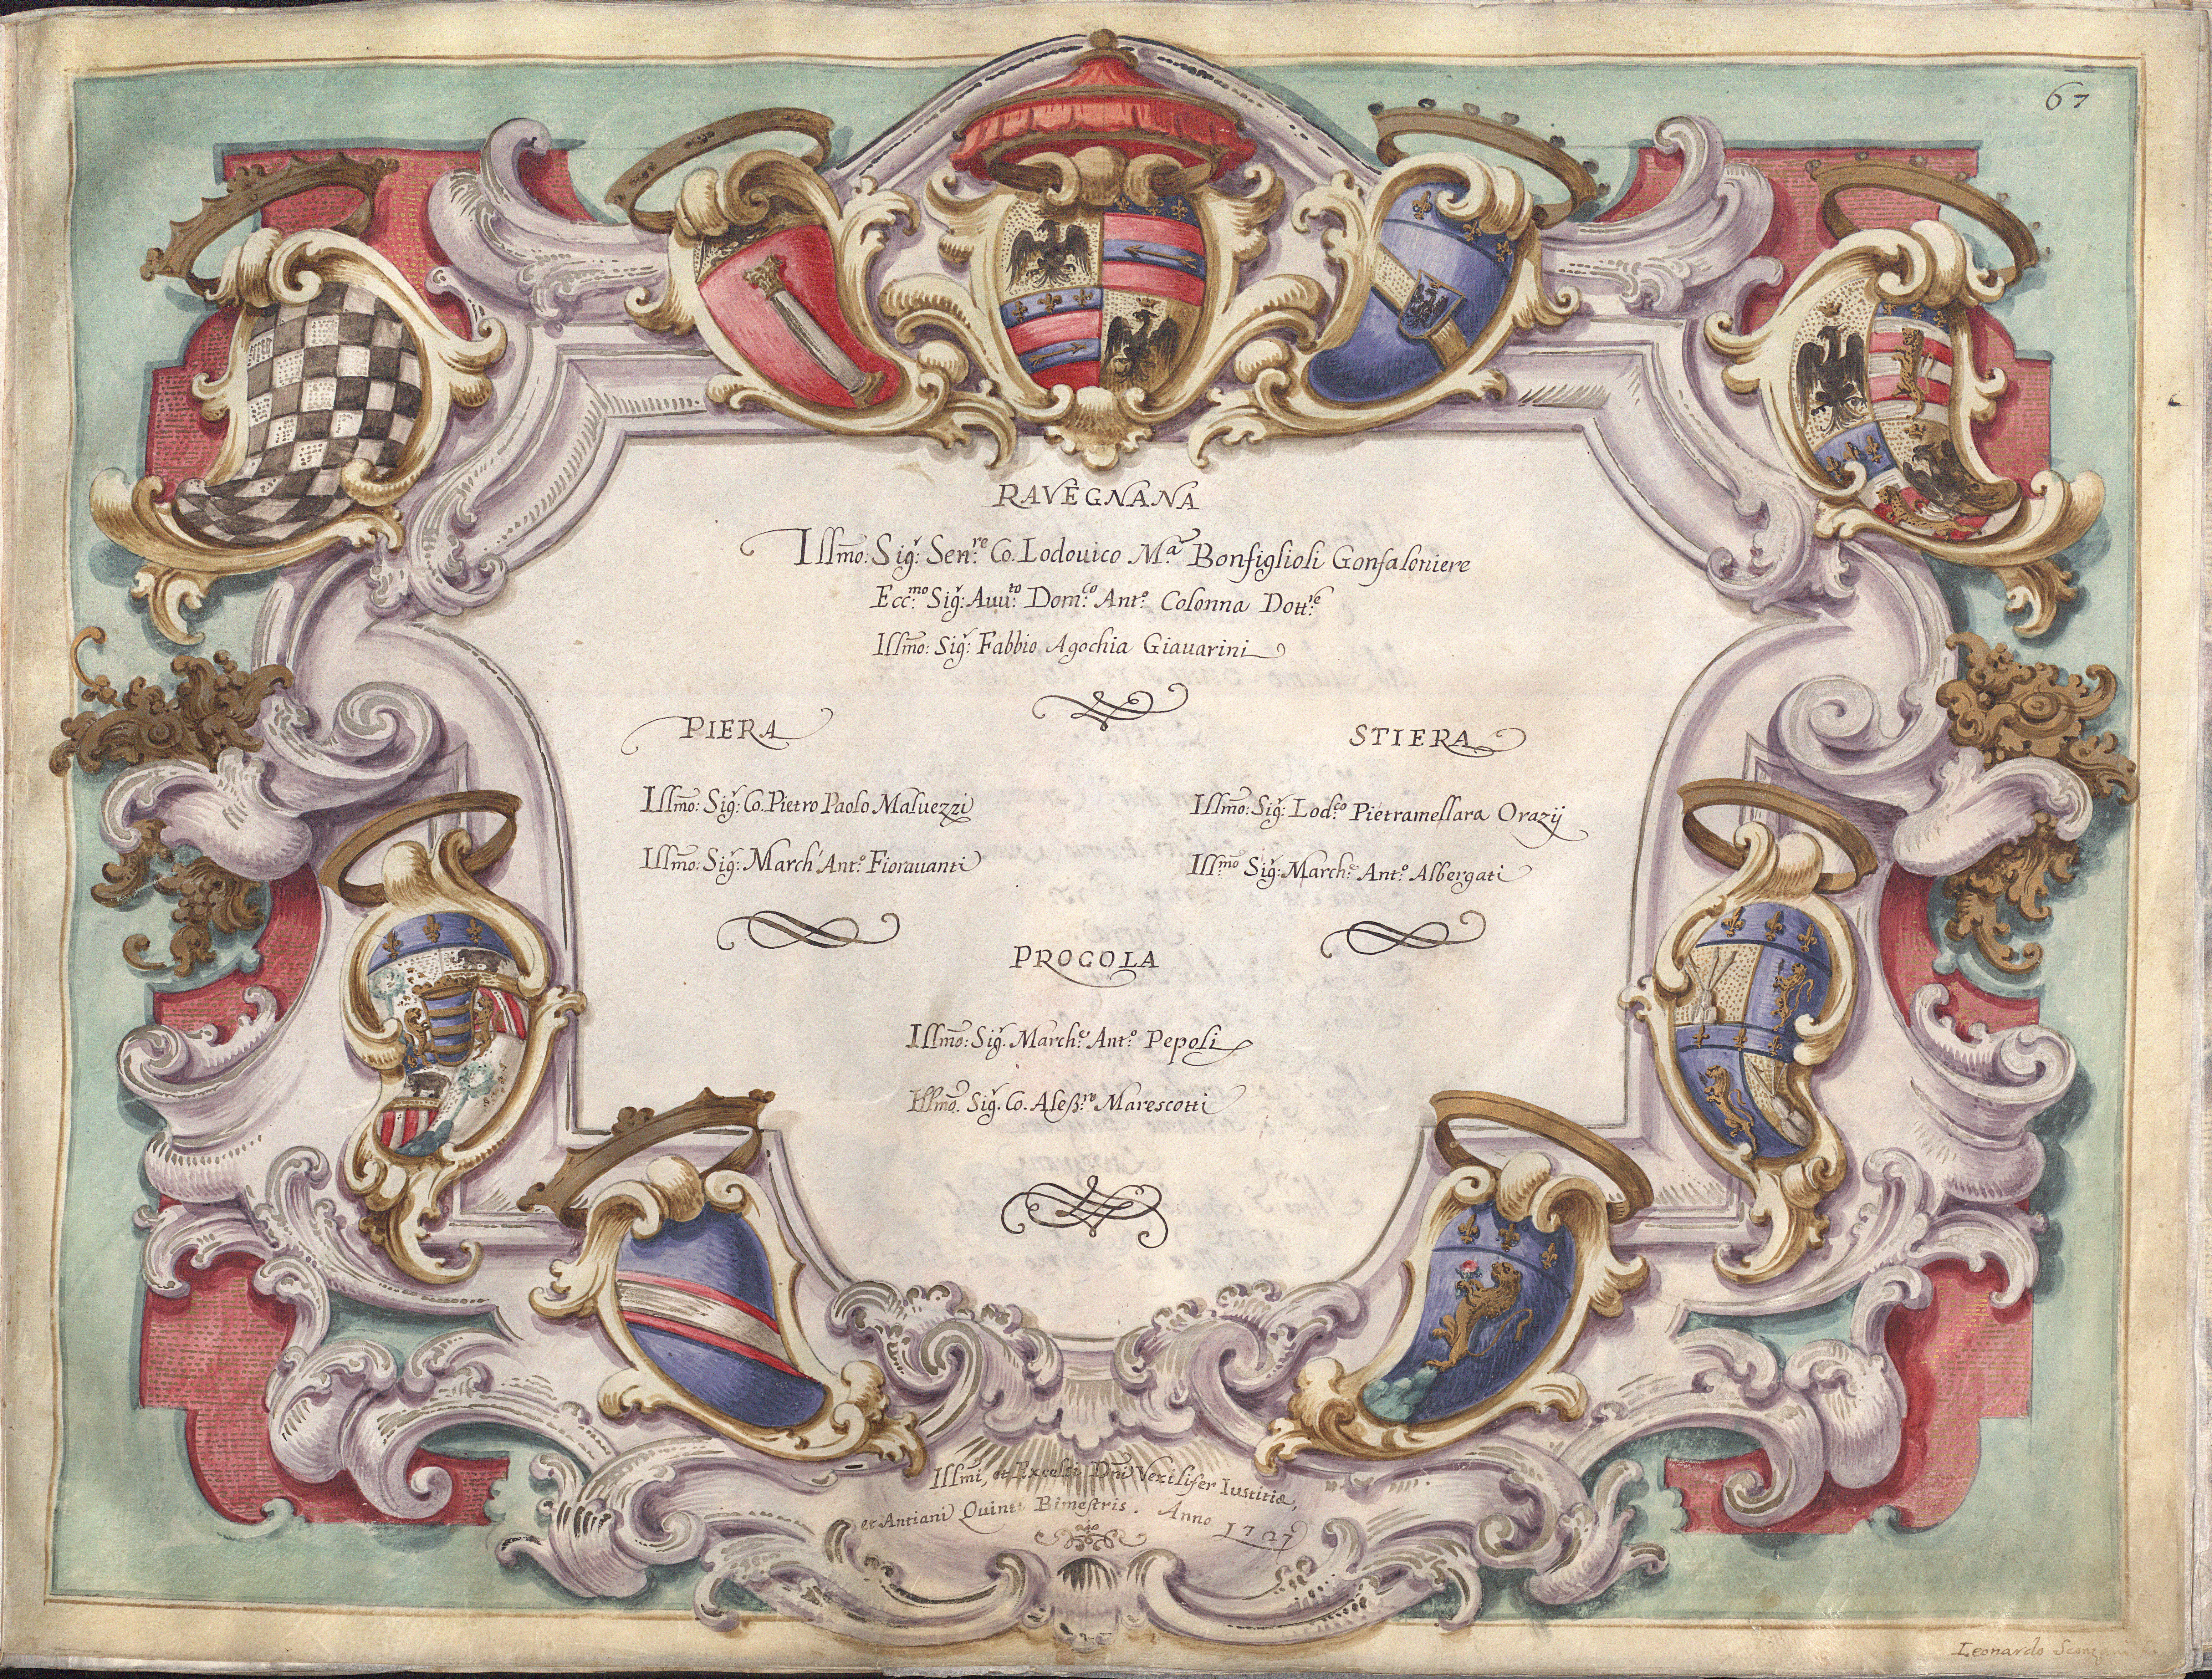 67
RAVEGNANA
Illm̃o: Sigʳ: Senʳᵉ: Co. Lodouico Mᵃ: Bonfiglioli Gonfaloniere
Eccᵐᵒ: Sigʳ: Auuᵗᵒ: Domᶜᵒ: Antº: Colonna Dottʳᵉ:
Illm̃o: Sigʳ: Fabbio Agochia Giauarini
PIERA
Illm̃o: Sigʳ: Co. Pietro Paolo Maluezzi
Illm̃o: Sigʳ: March' Antº: Fiorauanti
STIERA
Illm̃o: Sigʳ: Lodᶜᵒ: Pietramellara Orazij
Illᵐᵒ: Sigʳ: Marchᵉ: Antº: Albergati
PROCOLA
Illm̃o: Sigʳ. Marchᵉ: Antº: Pepoli
Illm̃o. Sigʳ. Co. Aleßʳᵒ: Marescotti
Illm̃i, et Excelsi Dn̄i Vexilifer Iustitiæ,
et Antiani Quinti Bimestris. Anno 1727
Leonardo Sconzani F.